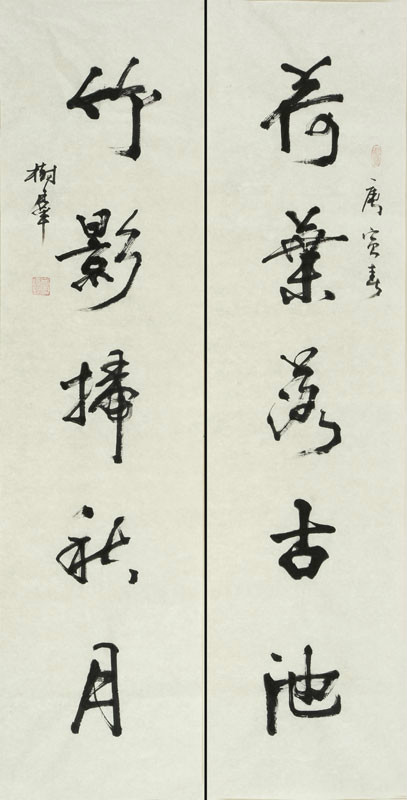 庚寅春
荷葉落古池
竹影掃秋月
樹羣